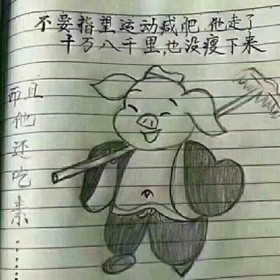 不要指望运动减肥,他走了
十万八千里,也没瘦下来
而且他还吃素
......